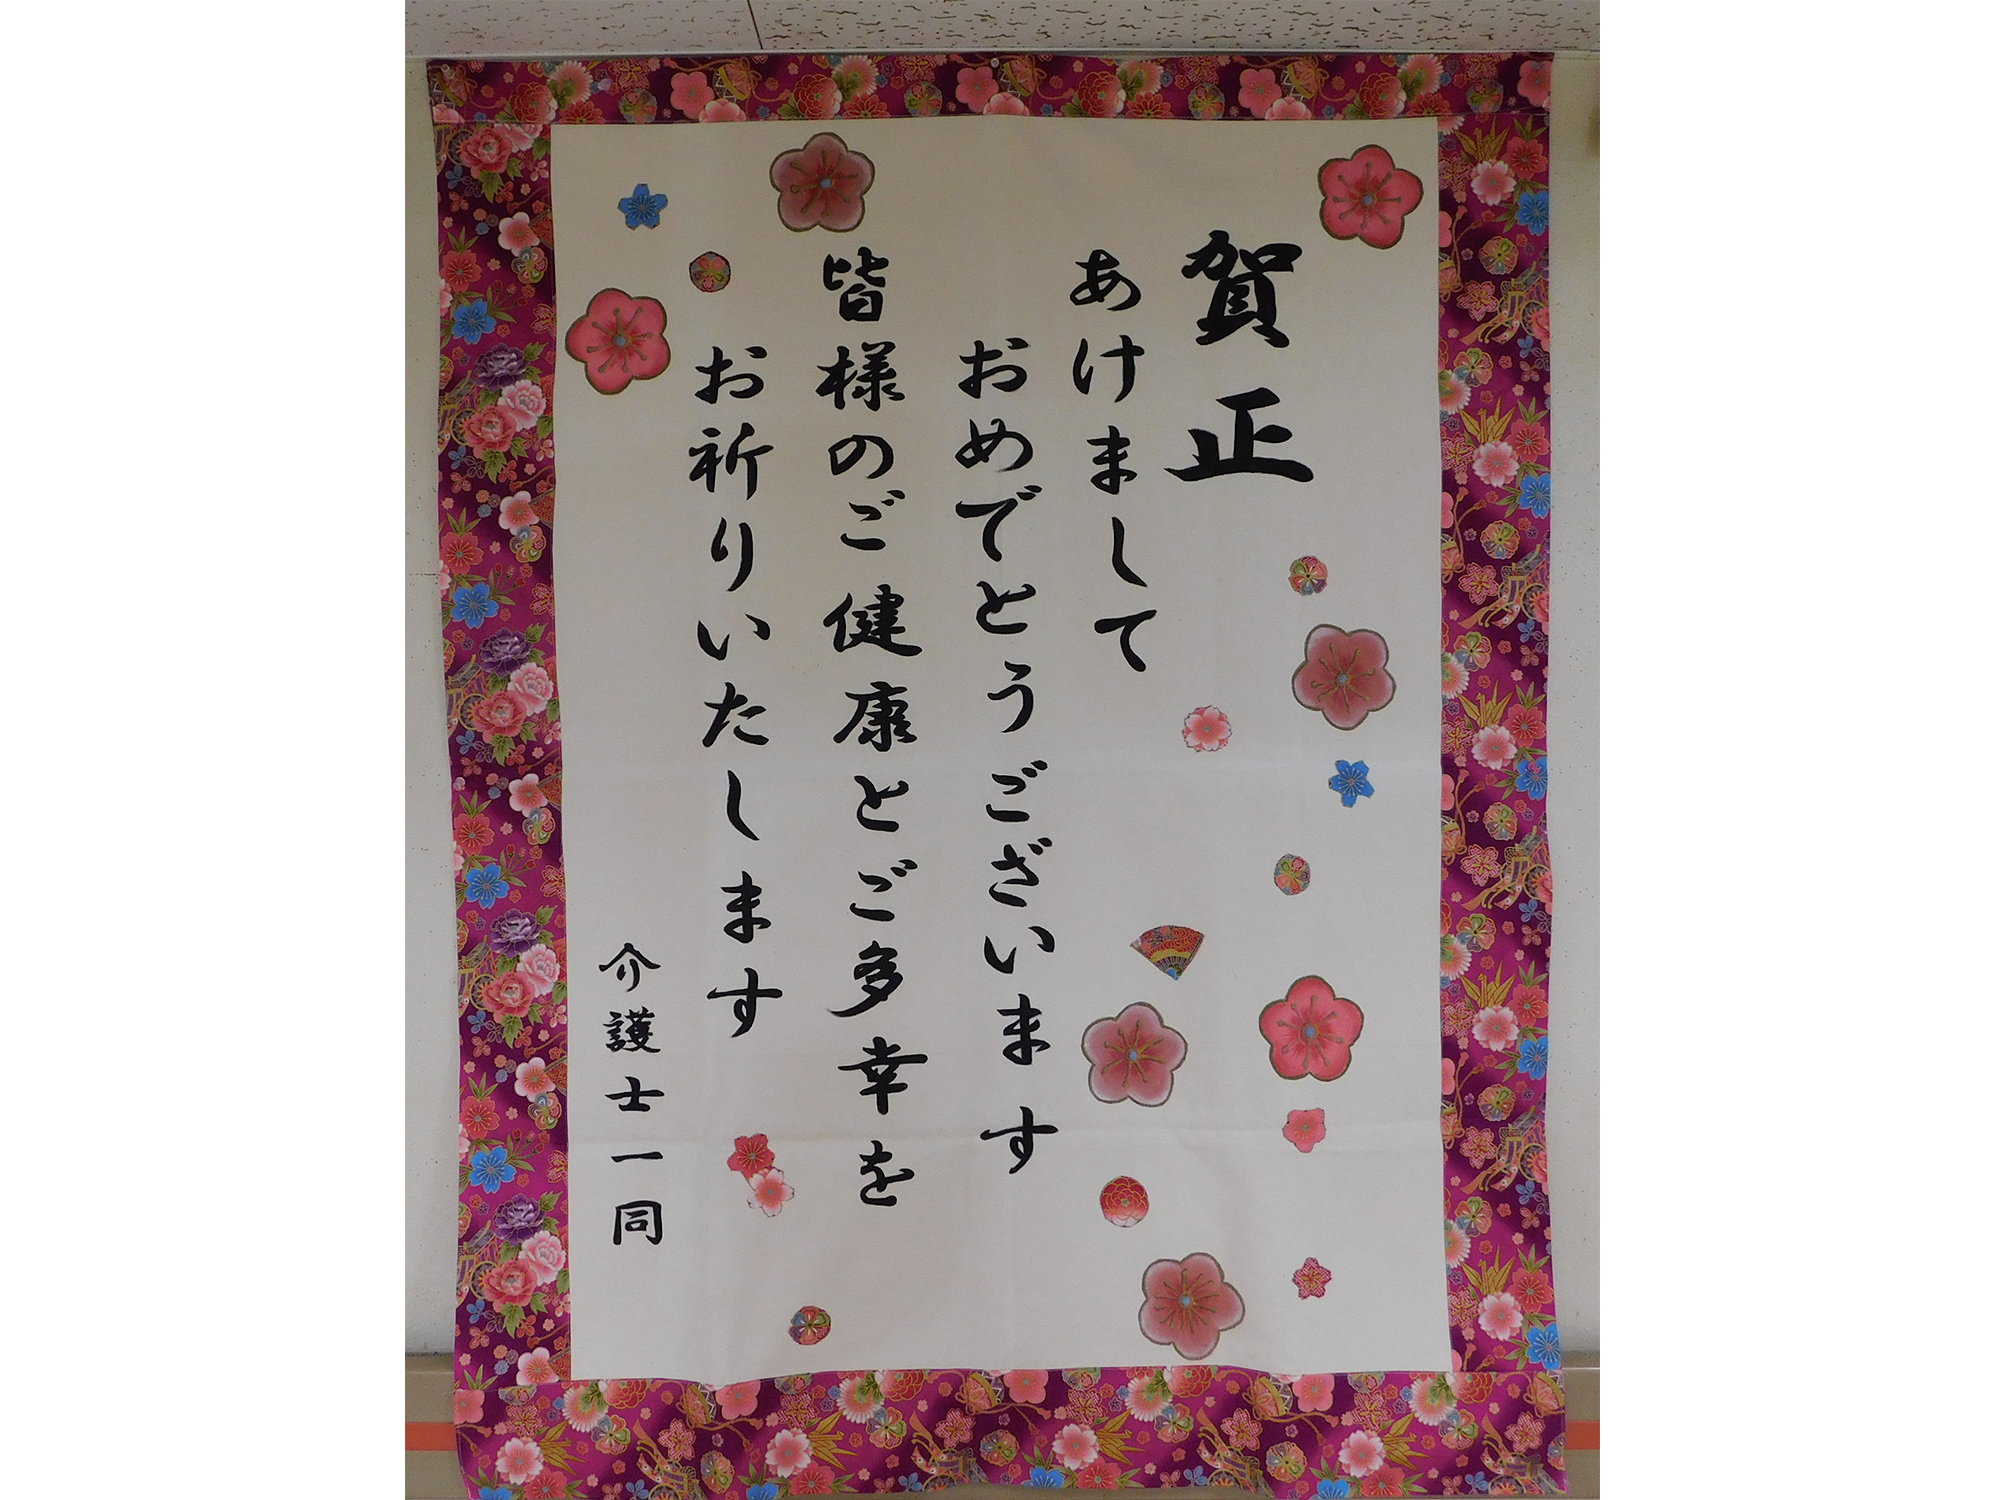 賀正
あけまして
おめでとうございます
皆様のご健康とご多幸を
お祈りいたします
介護士一同